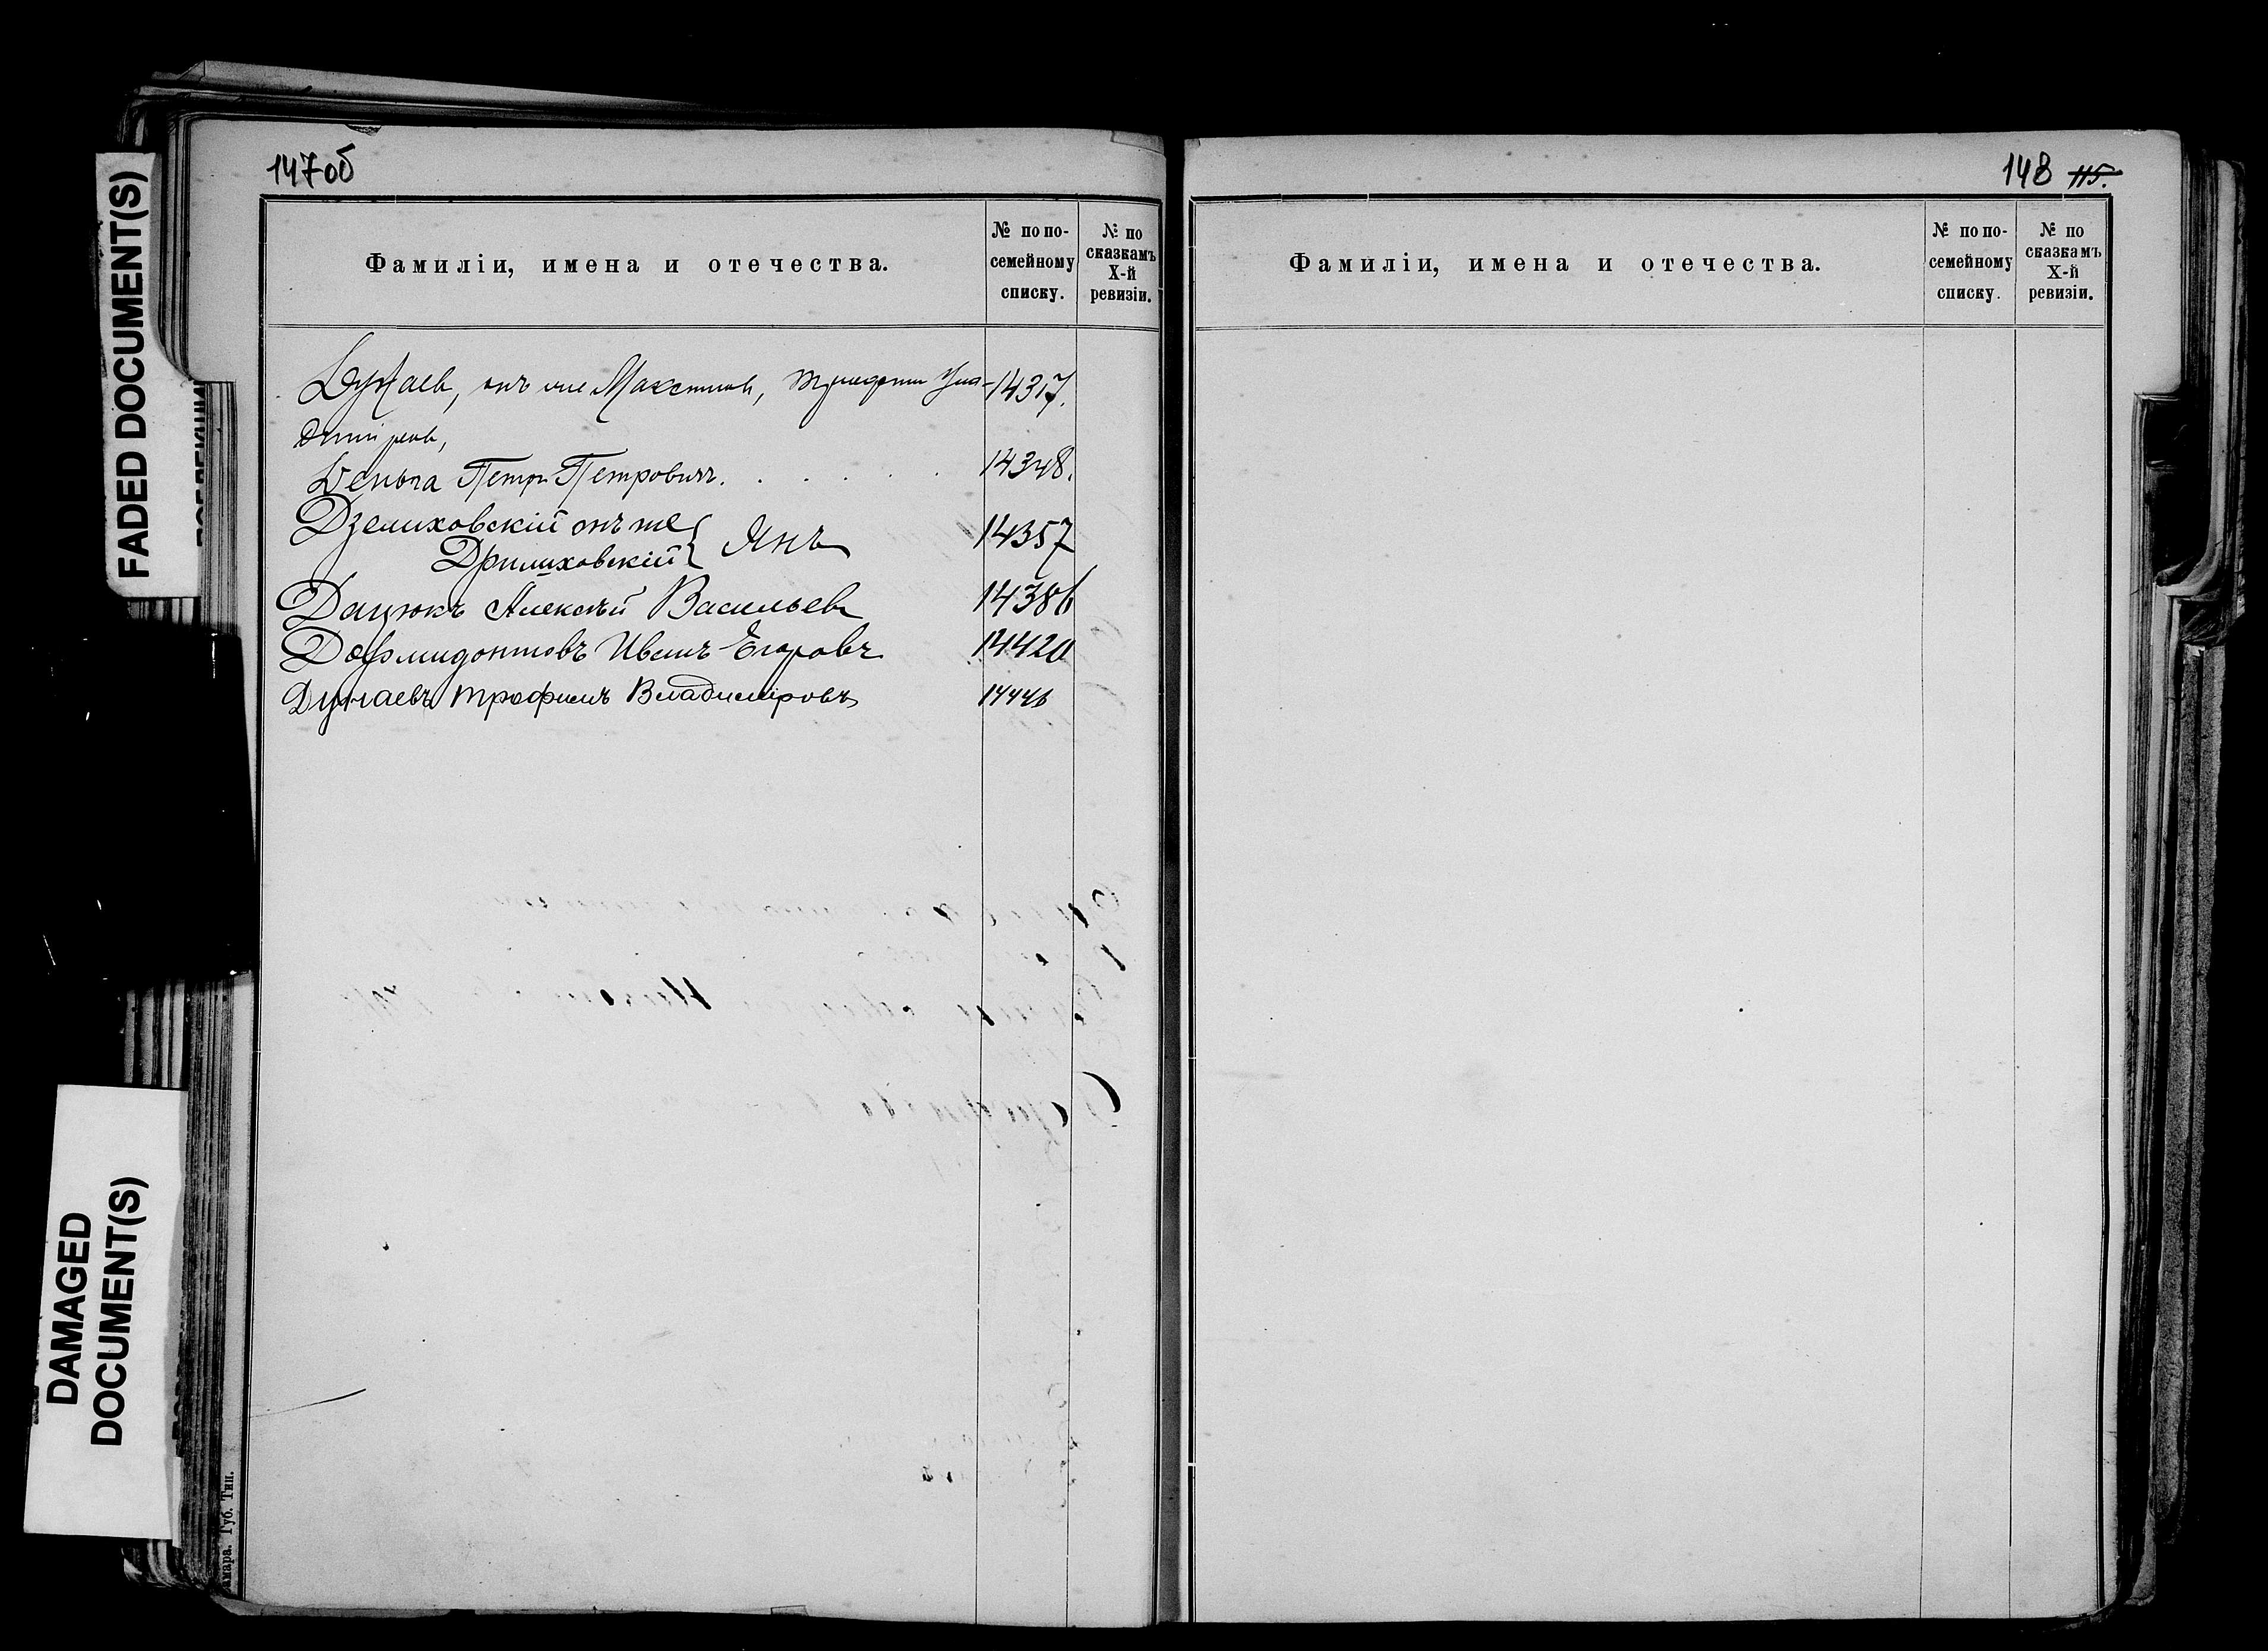 147об
Фамиліи, имена и отечества.
№ по по-
семейному
списку.
№ по
сказкамъ
X-й
ревизіи.
Дунаев, онъ же Максимов, 14317.
Петръ Петровичъ. . . . . . 14348.
Дзелиховскій онъ же
Дрилиховскій } Янъ 14357
Дацюкъ Алексѣй Васильев 14386
Дофмидонтовъ Иванъ Егоровъ 14420
Дунаевъ Трофимъ Владиміровъ 14446
148 115.
Фамиліи, имена и отечества.
№ по по-
семейному
списку.
№ по
сказкамъ
X-й
ревизіи.
FADED DOCUMENT(S)
DAMAGED
DOCUMENT(S)
Губ. Тип.